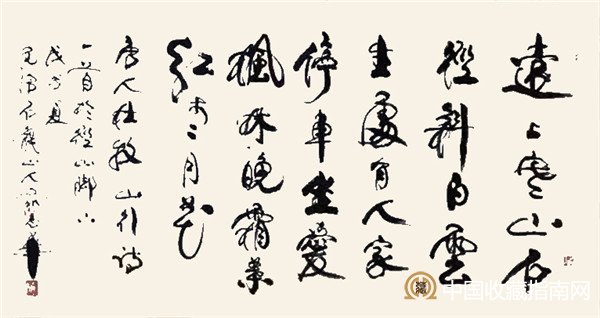 遠上寒山石
徑斜白雲
生處有人家
停車坐愛
楓林晚霜葉
紅於二月花
唐人杜牧山行詩
一首於徑山腳下
夏
中国收藏指南网